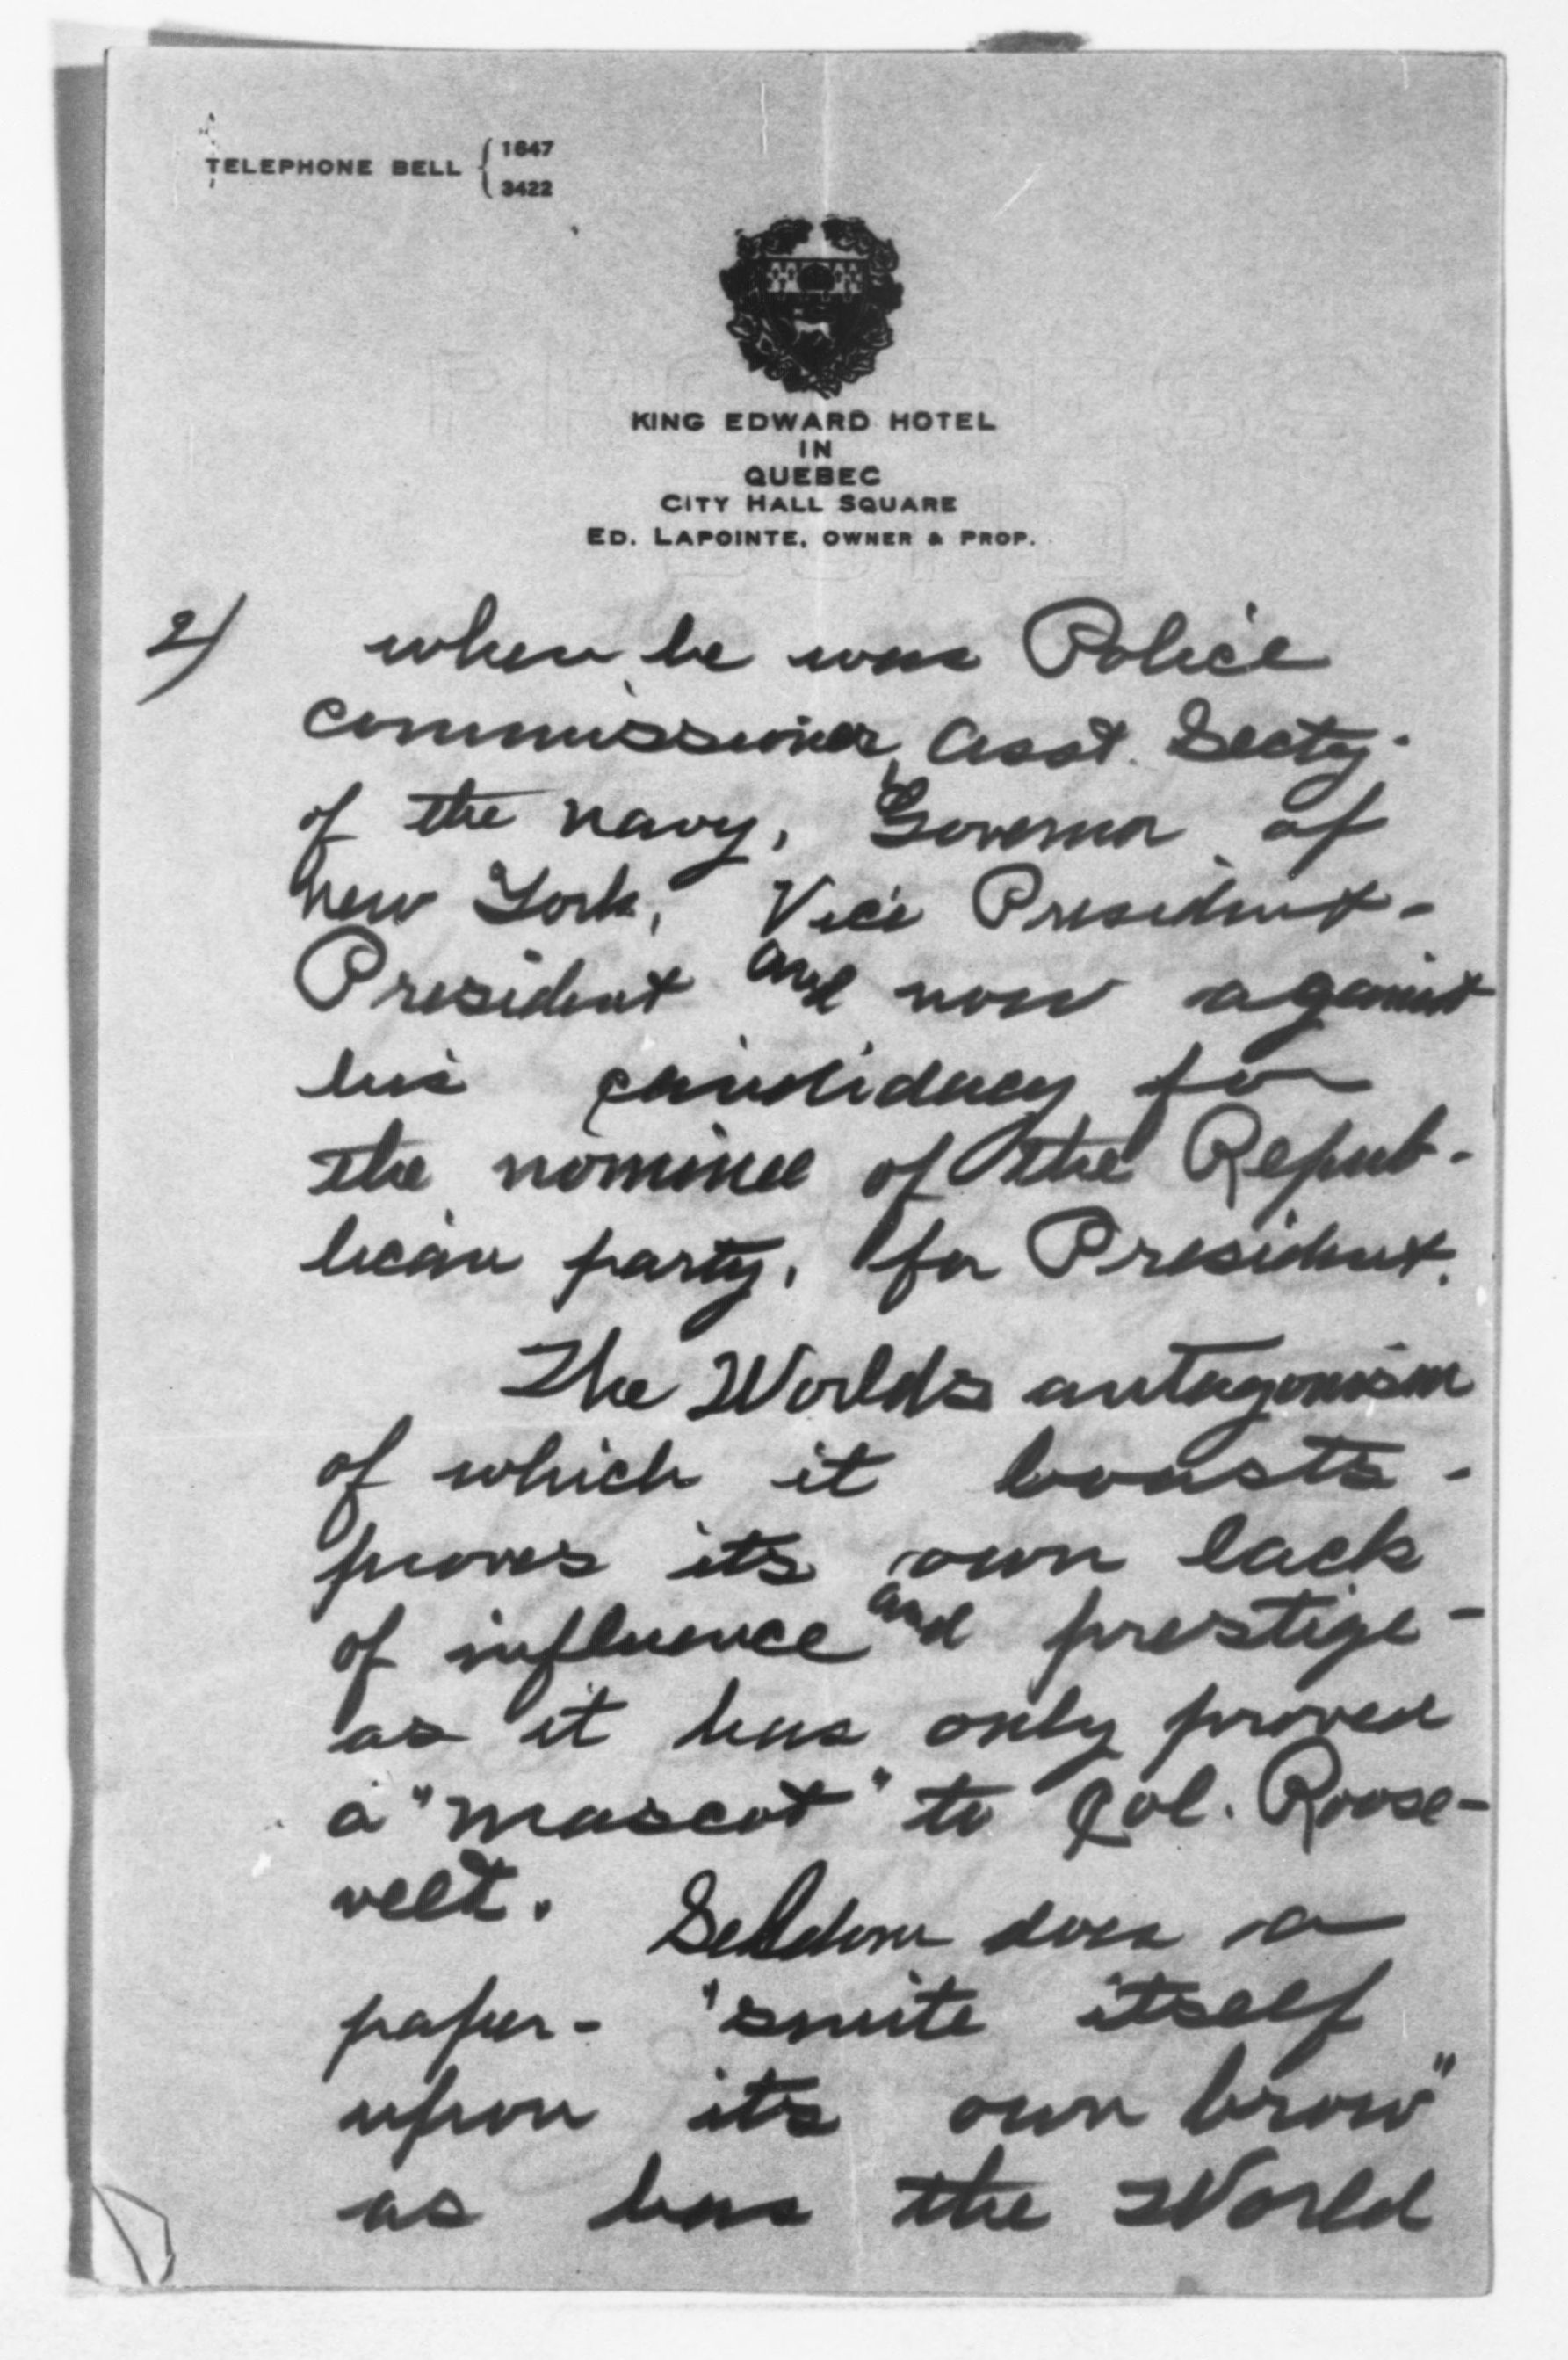 TELEPHONE BELL { 1647
3422
KING EDWARD HOTEL
IN
QUEBEC
CITY HALL SQUARE
ED. LAPOINTE, OWNER & PROP.
2/ when he was Police
Commissioner, Asst. Secty.
of the navy, Governor of
New York, Vice President -
President and now against
his candidacy for
the nominee of the Repub-
lican party, for President.
The Worlds antagonism
of which it boasts -
proves its own lack
of influence and prestige -
as it has only proved
a "mascot" to Col. Roose-
velt. Seldom does a
paper - "smite itself
upon its own brow"
as has the World